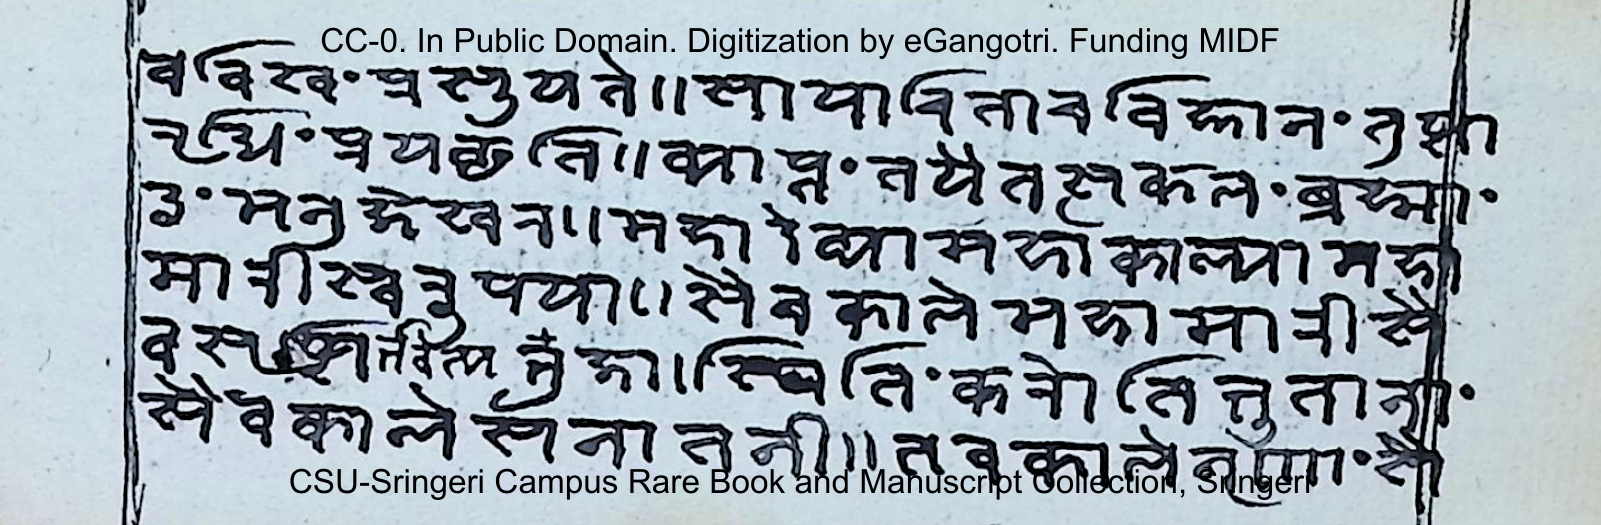 CC-0. In Public Domain. Digitization by eGangotri. Funding MIDF
व विश्वं प्रसूयते॥ सा याचिता च विज्ञानं तुष्टा
ऋद्धिं प्रयच्छति॥ व्याप्तं तयैतत्सकलं ब्रह्मा
ण्डं मनुजेश्वर॥ महाकाल्या महाकाल्या महा
मारीस्वरूपया॥ सैव काले महामारी सै
व सृष्टिर्भवत्यजा। स्थितिं करोति भूतानां
सैव काले सनातनी॥ भवकाले नृणां सै
CSU-Sringeri Campus Rare Book and Manuscript Collection, Sringeri